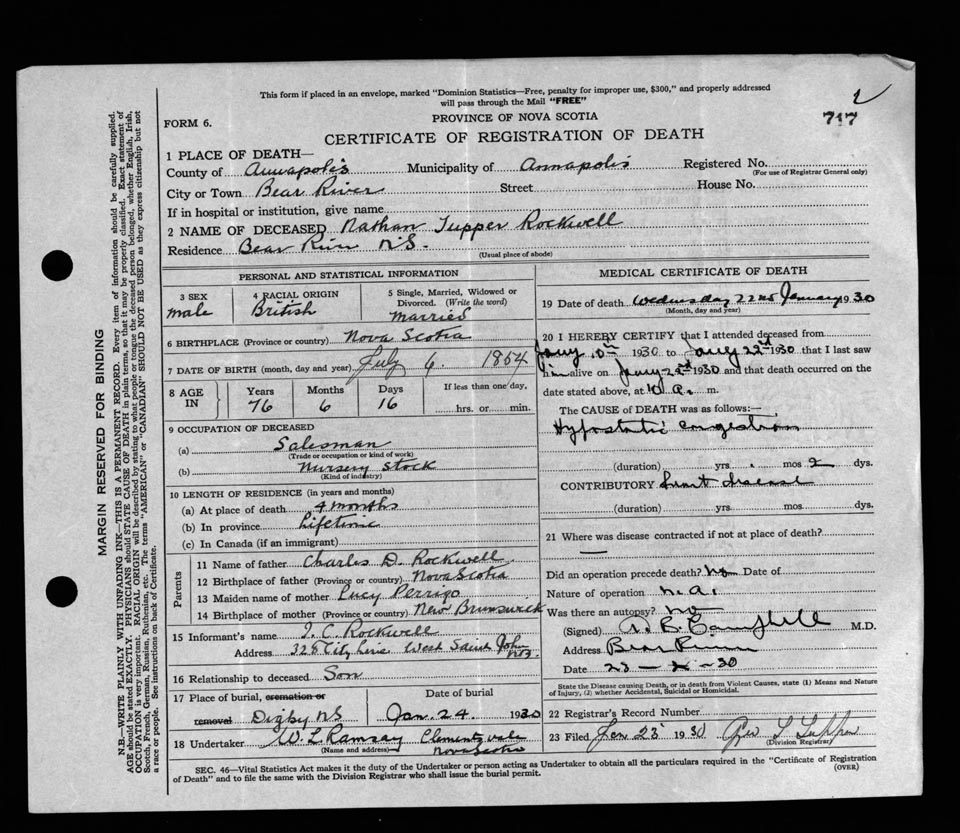 This form if placed in an envelope, marked "Dominion Statistics—Free, penalty for improper use, $300," and properly addressed
will pass through the Mail "FREE"
FORM 6.
PROVINCE OF NOVA SCOTIA
717
CERTIFICATE OF REGISTRATION OF DEATH
1 PLACE OF DEATH—
County of Annapolis Municipality of Annapolis Registered No.
(For use of Registrar General only)
City or Town Bear River Street House No.
If in hospital or institution, give name
2 NAME OF DECEASED Nathan Tupper Rockwell
Residence Bear River N.S.
(Usual place of abode)
PERSONAL AND STATISTICAL INFORMATION
3 SEX
male
4 RACIAL ORIGIN
British
5 Single, Married, Widowed or
Divorced. (Write the word)
Married
6 BIRTHPLACE (Province or country) Nova Scotia
7 DATE OF BIRTH (month, day and year) July 6. 1854
8 AGE
IN
Years Months Days If less than one/day,
76 6 16 hrs. or min.
9 OCCUPATION OF DECEASED
(a) Salesman
(Trade or occupation or kind of work)
(b) Nursery Stock
(Kind of industry)
10 LENGTH OF RESIDENCE (in years and months)
(a) At place of death 4 months
(b) In province Lifetime
(c) In Canada (if an immigrant)
Parents
11 Name of father Charles D. Rockwell
12 Birthplace of father (Province or country) Nova Scotia
13 Maiden name of mother Lucy Perrigo
14 Birthplace of mother (Province or country) New Brunswick
15 Informant's name I. C. Rockwell
Address 328 City Line West Saint John N.B.
16 Relationship to deceased Son
17 Place of burial, cremation or
removal Digby NS
Date of burial
Jan. 24. 1930
18 Undertaker W. L Ramsay Clementsvale
Nova Scotia
(Name and address)
MEDICAL CERTIFICATE OF DEATH
19 Date of death Wednesday 22nd January 1930
(Month, day and year)
20 I HEREBY CERTIFY that I attended deceased from
1930 to 1930 that I last saw
him alive on 1930 and that death occurred on the
date stated above, at 10 a. m.
The CAUSE of DEATH was as follows:—
Hypostatic congestion
(duration) yrs. mos 2 dys.
CONTRIBUTORY heart disease
(duration) yrs mos dys.
21 Where was disease contracted if not at place of death?
—
Did an operation precede death? no Date of
Nature of operation n.a.
Was there an autopsy? no
(Signed) Campbell M.D.
Address Bear River
Date 23 — 30
State the Disease causing Death, or in death from Violent Causes, state (1) Means and Nature
of Injury, (2) whether Accidental, Suicidal or Homicidal.
22 Registrar's Record Number
23 Filed Jan 23 1930
(Division Registrar)
SEC. 46—Vital Statistics Act makes it the duty of the Undertaker or person acting as Undertaker to obtain all the particulars required in the "Certificate of Registration
of Death" and to file the same with the Division Registrar who shall issue the burial permit.
(OVER)
MARGIN RESERVED FOR BINDING
N.B.—WRITE PLAINLY WITH UNFADING INK—THIS IS A PERMANENT RECORD. Every item of information should be carefully supplied.
AGE should be stated EXACTLY. PHYSICIANS should STATE CAUSE OF DEATH in plain terms, so that it may be properly classified. Exact statement of
OCCUPATION is very important. RACIAL ORIGIN will be described by stating to what people or tongue the deceased person belonged, whether English, Irish,
Scotch, French, German, Russian, Ruthenian, etc. The terms "AMERICAN" or "CANADIAN" SHOULD NOT BE USED as they express citizenship but not
a race or people. See instructions on back of Certificate.